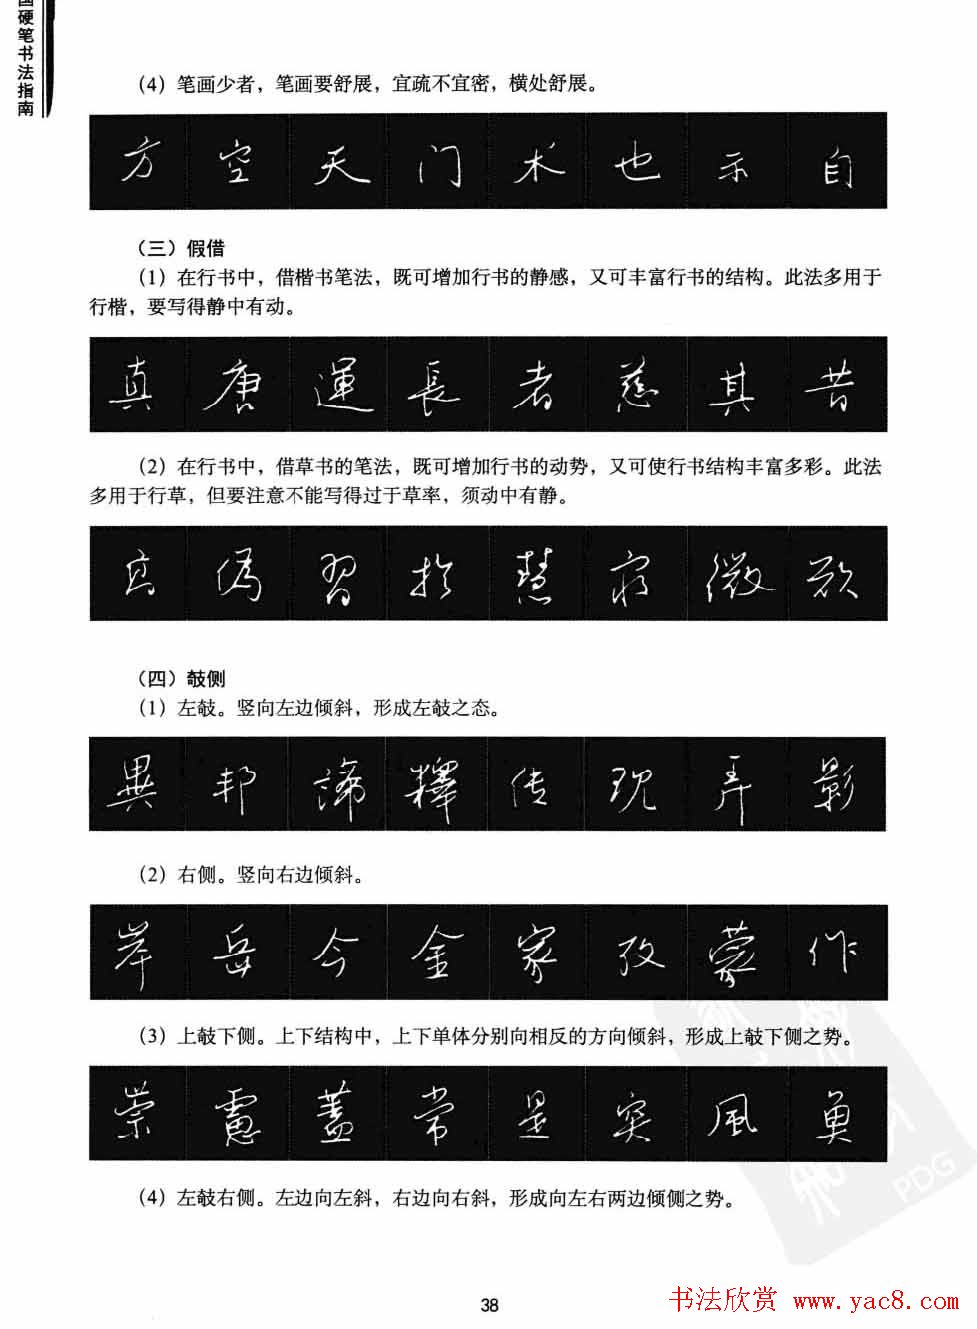 国硬笔书法指南
（4）笔画少者，笔画要舒展，宜疏不宜密，横处舒展。
方 空 天 门 术 也 示 自
（三）假借
（1）在行书中，借楷书笔法，既可增加行书的静感，又可丰富行书的结构。此法多用于
行楷，要写得静中有动。
真 唐 運 長 者 慈 其 昔
（2）在行书中，借草书的笔法，既可增加行书的动势，又可使行书结构丰富多彩。此法
多用于行草，但要注意不能写得过于草率，须动中有静。
高 偽 習 於 慧 察 微 歌
（四）攲侧
（1）左攲。竖向左边倾斜，形成左攲之态。
異 邦 諦 釋 传 现 弄 影
（2）右侧。竖向右边倾斜。
岸 岳 今 金 家 孜 蒙 作
（3）上攲下侧。上下结构中，上下单体分别向相反的方向倾斜，形成上攲下侧之势。
崇 慮 蓋 常 是 突 風 勇
（4）左攲右侧。左边向左斜，右边向右斜，形成向左右两边倾侧之势。
PDG
38
书法欣赏 www.yac8.com